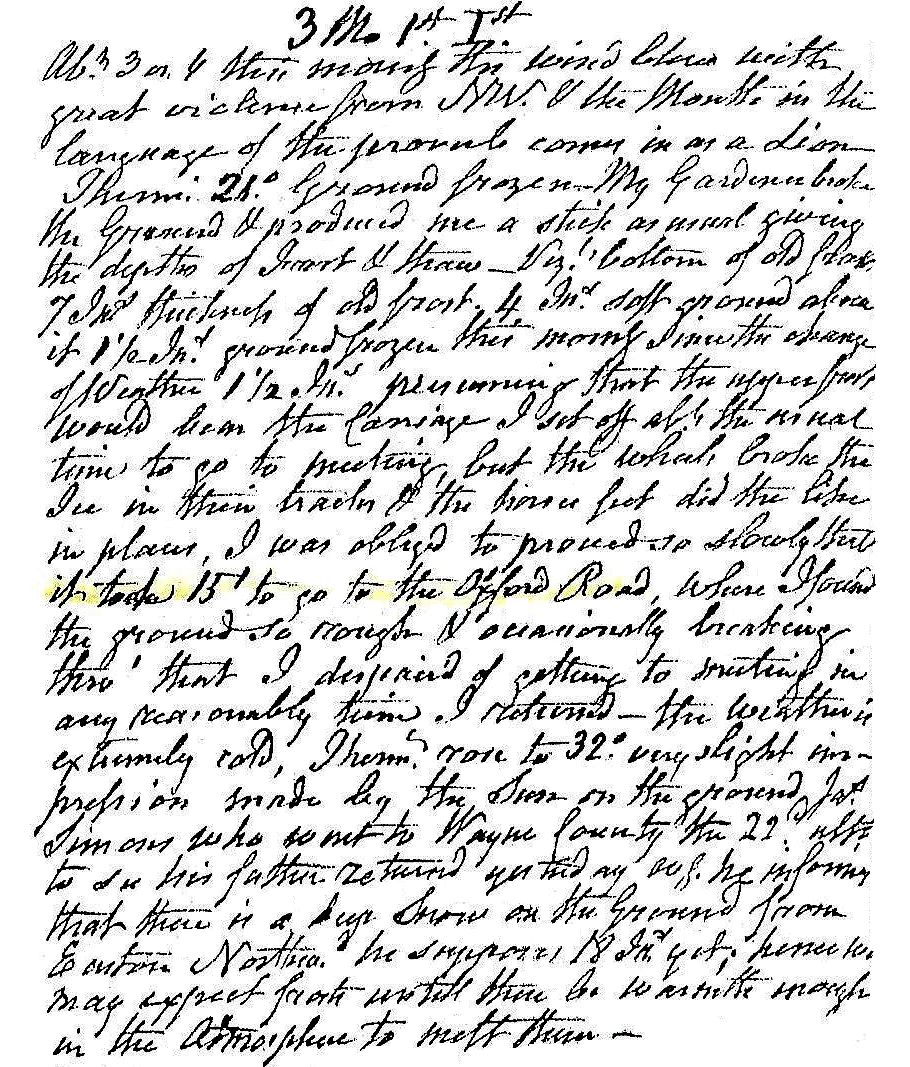 3 M. 1st 1st
Abt 3 or 4 this morng the wind blew with
great violence from NW. & the Month in the
language of the proverb comes in as a Lion
Therm. 21° Ground frozen - My Gardener broke
the Ground & produced me a stick as usual giving
the depths of Frost & thaw - Vizt bottom of old frost
7 Ins thickness of old frost. 4 Ins soft ground above
it 1 1/2 Ins ground frozen this morng since the change
of Weather 1 1/2 Ins presuming that the upper frost
would bear the Carriage I set off abt the usual
time to go to meeting, but the wheels broke the
Ice in their tracks & the horses feet did the like
in places, I was obliged to proceed so slowly that
it took 15' to go to the Oxford Road, where I found
the ground so rough & occasionally breaking
thro' that I despaird of getting to meeting in
any reasonably time I returned - the weather is
extremely cold, Therm. rose to 32° very slight im-
pression made by the Sun on the ground, Jas
Simons who went to Wayne County the 22d ulto
to see his father returned yesterday evg. he informs
that there is a deep Snow on the Ground from
Easton Northwd. he supposes 18 Ins yet; hence we
may expect frosts untill there be warmth enough
in the Atmosphere to melt them -